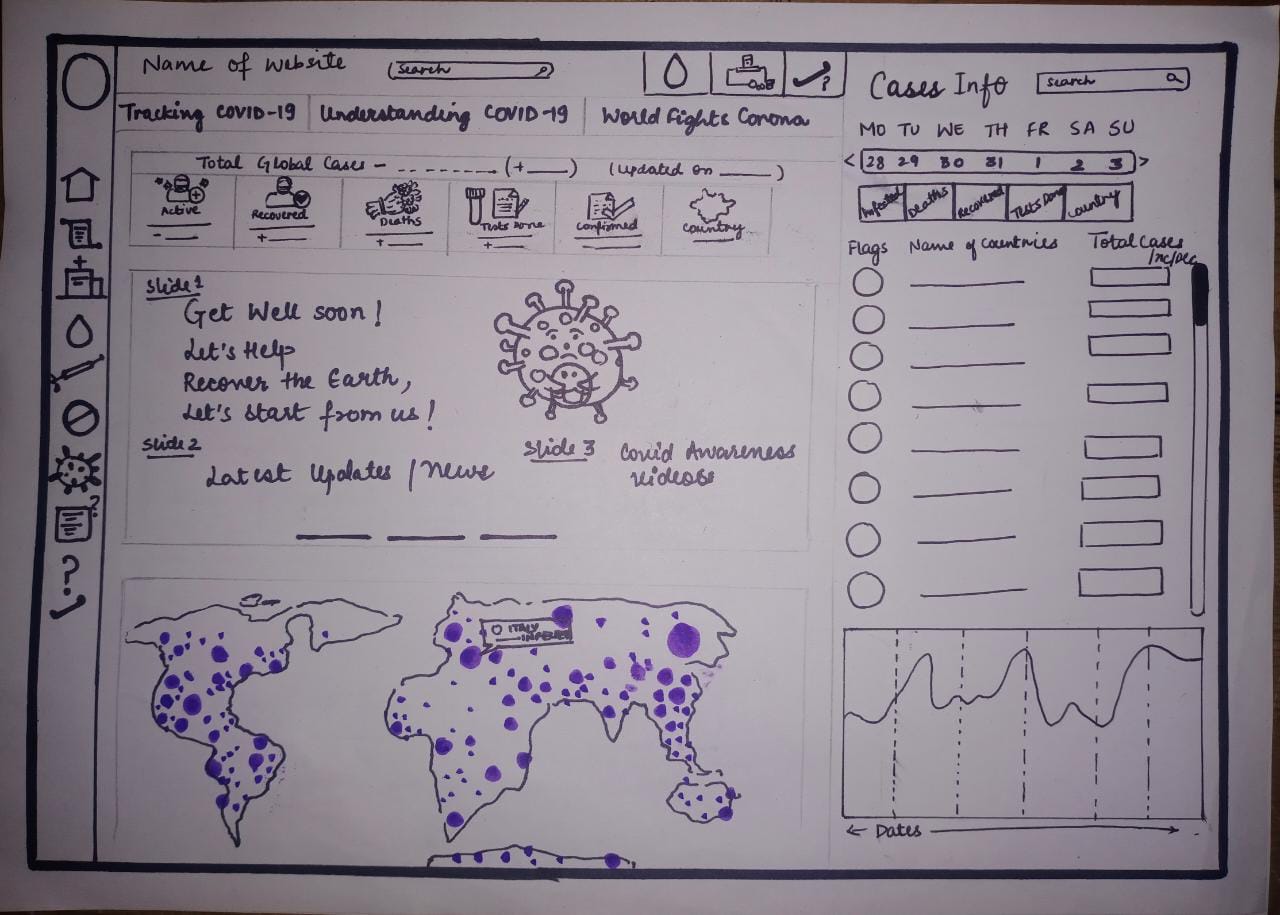 Name of website
Search
Tracking COVID-19
Understanding COVID-19
World Fights Corona
Total Global Cases - (+ ) (Updated on )
Active
Recovered
Deaths
Tests Done
Confirmed
Country
Slide 1
Get Well soon!
Let's Help
Recover the Earth,
Let's start from us!
Slide 2
Latest Updates / News
Slide 3
Covid Awareness
Videos
ITALY
Cases Info
Search
MO TU WE TH FR SA SU
< 28 29 30 31 1 2 3 >
Infected
Deaths
Recovered
Tests Done
Country
Flags
Name of Countries
Total Cases
Inc/Dec
Dates